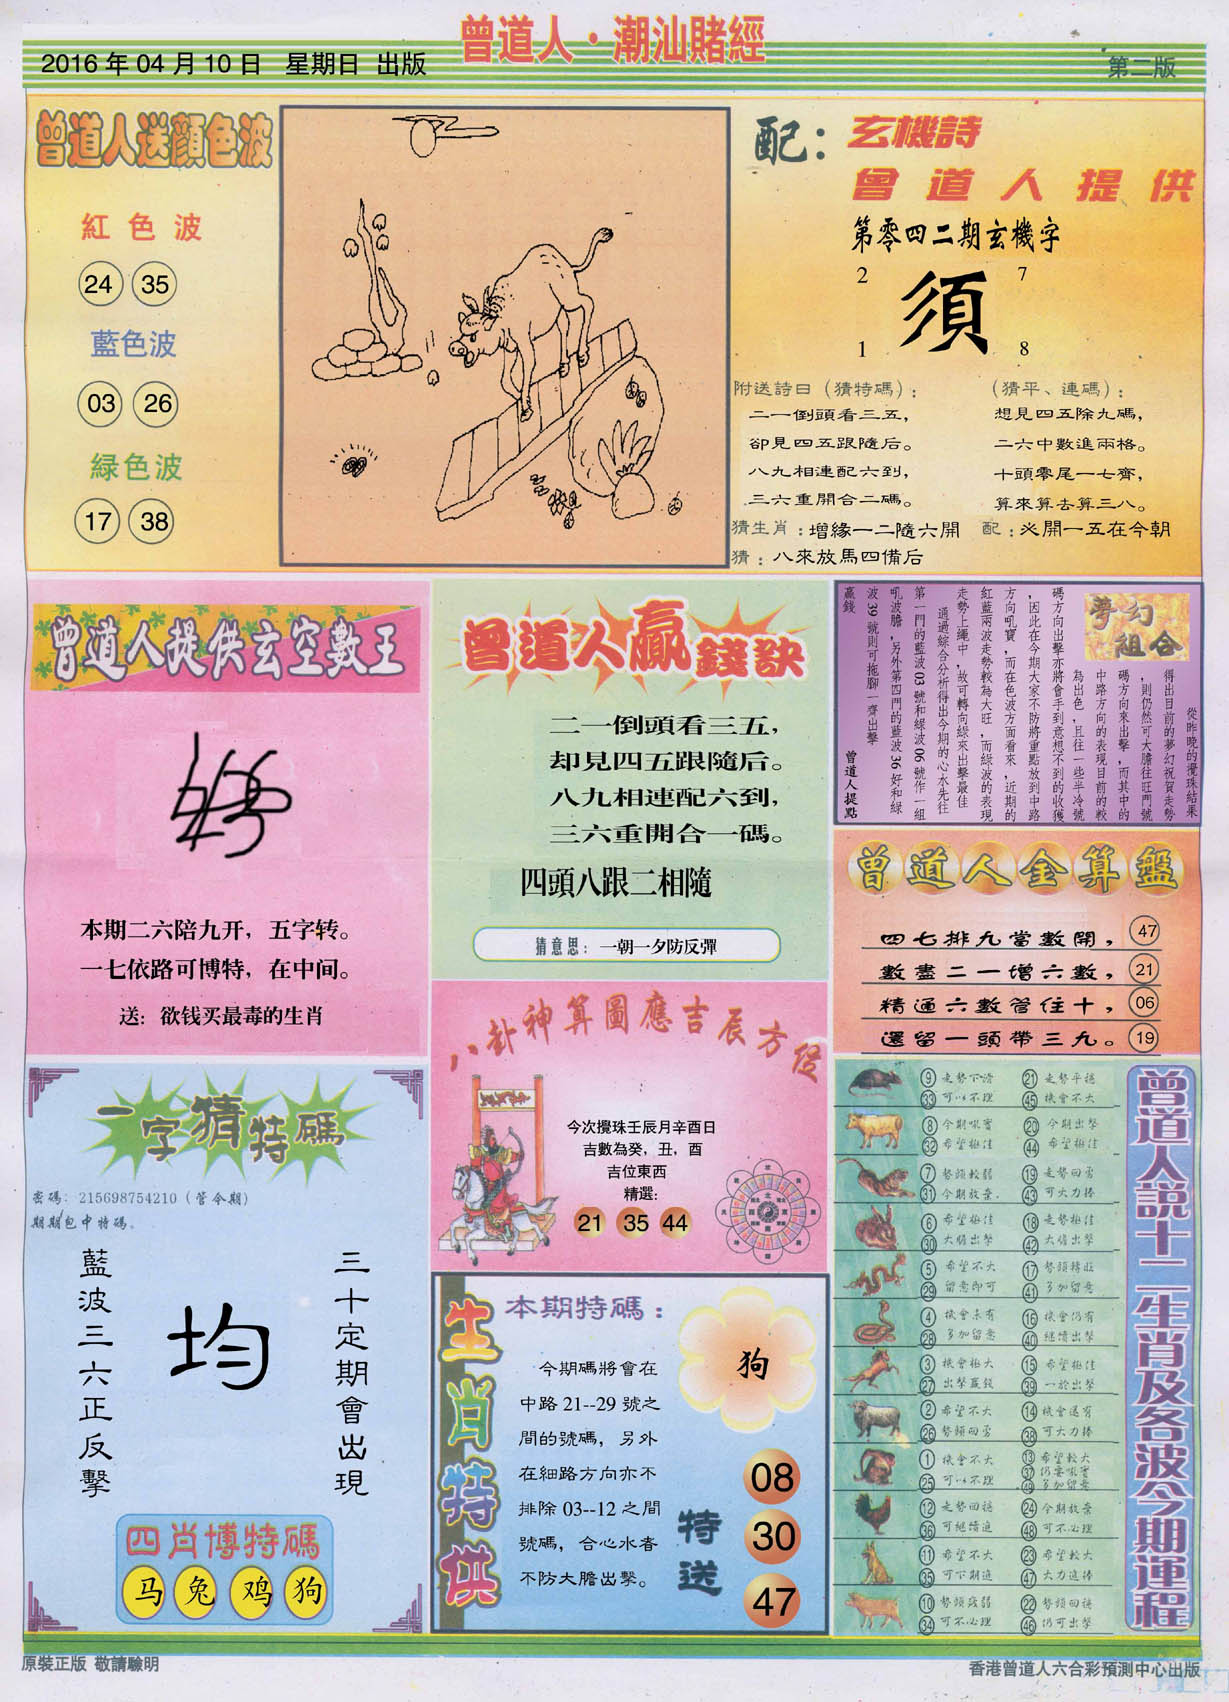 曾道人·潮汕賭經
2016年04月10日 星期日 出版
第二版
曾道人送顏色波
紅色波
24 35
藍色波
03 26
緑色波
17 38
配：
玄機詩
曾道人提供
第零四二期玄機字
2 7
須
1 8
附送詩曰（猜特碼）：
二一倒頭看三五，
卻見四五跟隨后。
八九相連配六到，
三六重開合二碼。
（猜平、連碼）：
想見四五除九碼，
二六中數進兩格。
十頭零尾一七齊，
算來算去算三八。
猜生肖：增緣一二隨六開
配：必開一五在今朝
猜：八來放馬四備后
曾道人提供玄空數王
本期二六陪九开，五字转。
一七依路可博特，在中间。
送：欲钱买最毒的生肖
曾道人贏錢訣
二一倒頭看三五，
却見四五跟隨后。
八九相連配六到，
三六重開合一碼。
四頭八跟二相隨
猜意思：一朝一夕防反彈
夢幻組合
從昨晚的攪珠結果
得出目前的夢幻祝賀走勢
，則仍然可大膽往旺門號
碼方向來出擊，而其中的
中路方向的表現目前的較
為出色，且往一些半冷號
碼方向出擊亦將會手到意想不到的收獲
，因此在今期大家不防將重點放到中路
方向吼寶，而在色波方面看來，近期的
紅藍兩波走勢較為大旺，而綠波的表現
走勢上繩中，故可轉向綠來出擊最佳
通過綜合分析得出今期的心水先往
第一門的藍波03號和綠波06號作一組
吼波膽，另外第四門的藍波36好和綠
波39號則可拖腳一齊出擊
贏錢
曾道人提點
曾道人金算盤
四七排九當數開， 47
數盡二一增六數， 21
精通六數管住十， 06
還留一頭帶三九。 19
八卦神算圖應吉辰方位
今次攪珠壬辰月辛酉日
吉數為癸，丑，酉
吉位東西
精選：
21 35 44
一字猜特碼
密碼：215698754210（管今期）
期期包中特碼。
三十定期會出現
均
藍波三六正反擊
四肖博特碼
马 兔 鸡 狗
生肖特供
本期特碼：
狗
今期碼將會在
中路21--29號之
間的號碼，另外
在細路方向亦不
排除03--12之間
號碼，合心水者
不防大膽出擊。
特送
08
30
47
曾道人説十二生肖及各波今期運程
⑨ 走勢下滑 ㉑ 走勢平穩
㉝ 可以不理 ㊺ 機會不大
⑧ 今期吼寶 ⑳ 今期出擊
㉜ 希望極佳 ㊹ 希望極佳
⑦ 勢頭較弱 ⑲ 走勢回勇
㉛ 今期放棄. ㊸ 可大力捧
⑥ 希望極佳 ⑱ 走勢極佳
㉚ 大膽出擊 ㊷ 大膽出擊
⑤ 希望不大 ⑰ 勢頭轉旺
㉙ 留意即可 ㊶ 多加留意
④ 機會未有 ⑯ 機會仍有
㉘ 多加留意 ㊵ 繼續出擊
③ 機會極大 ⑮ 希望極佳
㉗ 出擊贏錢 ㊴ 一於出擊
② 希望不大 ⑭ 機會還有
㉖ 勢頭回勇 ㊳ 可大力捧
① 機會不大 ⑬ 希望較大
㉕ 可以不理 ㊲ 仍要吼寶
㊾ 多加留意
⑫ 走勢回穩 ㉔ 今期放棄
㊱ 可繼續追 ㊽ 可不必理
⑪ 希望不大 ㉓ 希望較大
㉟ 可下期追 ㊼ 大力追捧
⑩ 勢頭疲弱 ㉒ 勢頭回穩
㉞ 可不必理 ㊻ 仍可出擊
原裝正版 敬請驗明
香港曾道人六合彩預測中心出版